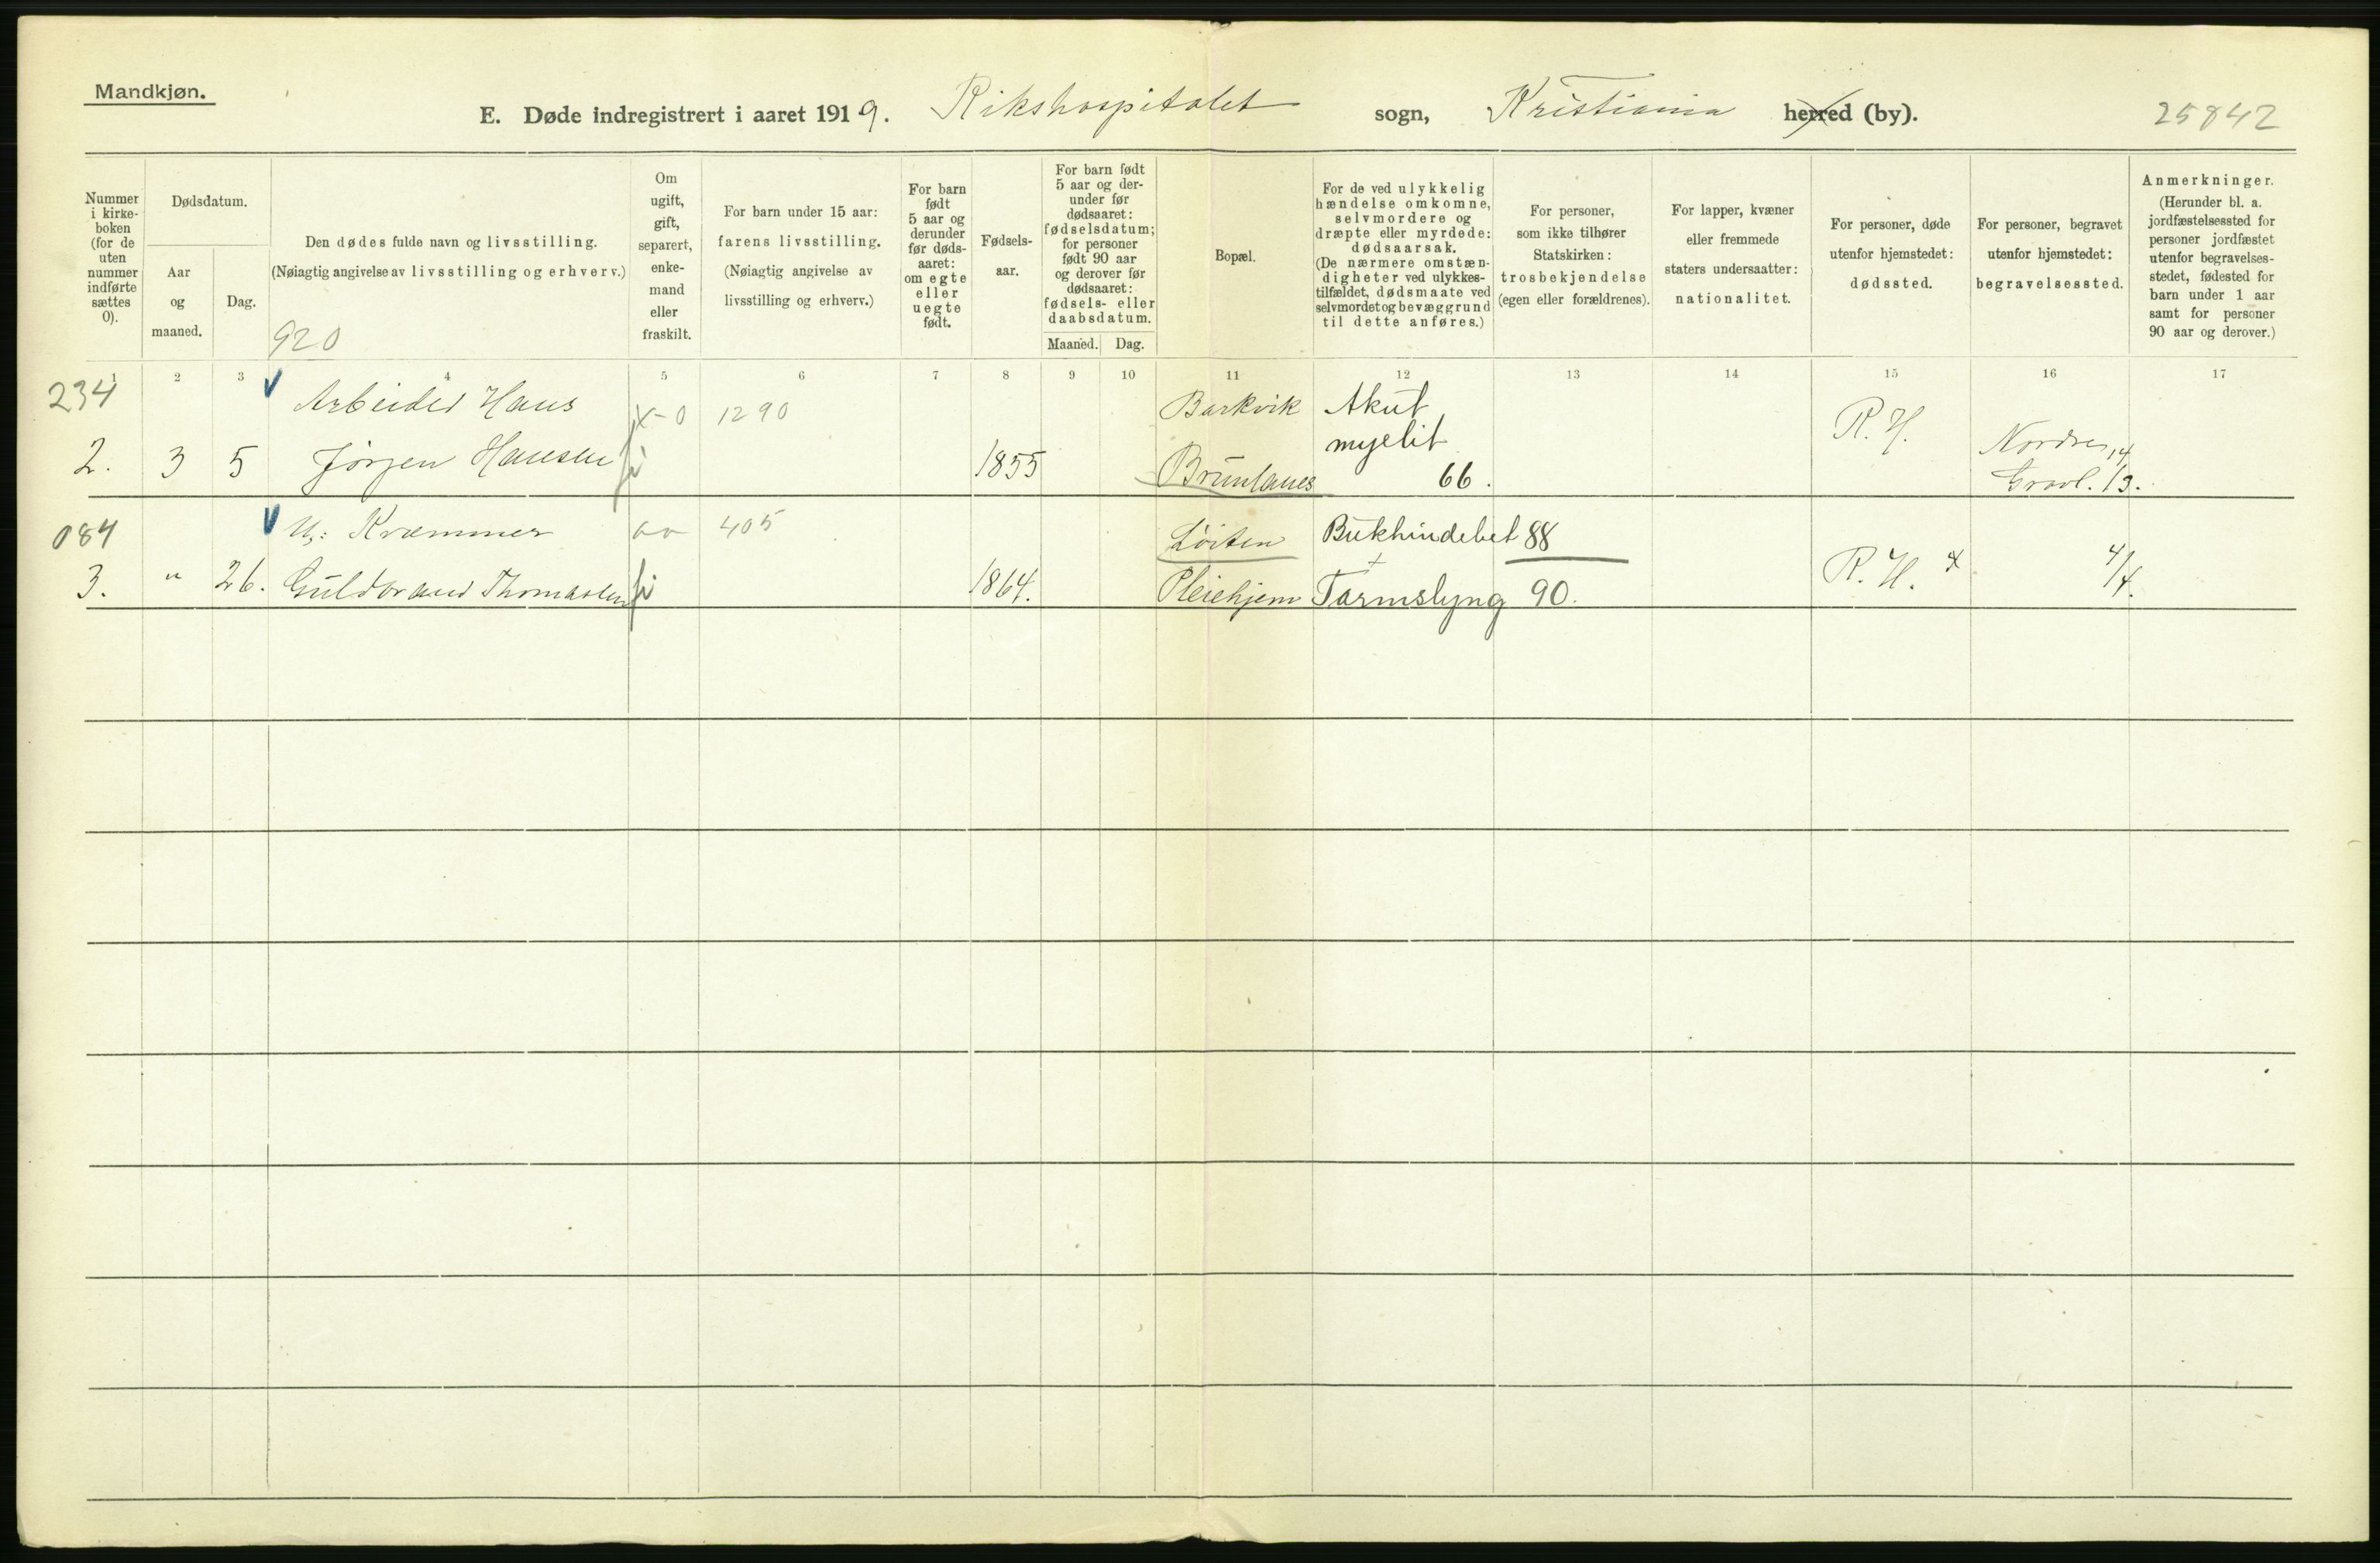 Mandkjøn.
E. Døde indregistrert i aaret 1919. Rikshospitalet sogn, Kristiania herred (by). 25842
Nummer i kirke-boken (for de uten nummer indførte sættes 0).
Dødsdatum.
Aar og maaned.
Dag.
Den dødes fulde navn og livsstilling.
(Nøiagtig angivelse av livsstilling og erhverv.)
920
Om ugift, gift, separert, enke-mand eller fraskilt.
For barn under 15 aar:
farens livsstilling.
(Nøiagtig angivelse av
livsstilling og erhverv.)
For barn født 5 aar og derunder før døds-aaret: om egte eller uegte født.
Fødsels-aar.
For barn født 5 aar og der-under før dødsaaret: fødselsdatum; for personer født 90 aar og derover før dødsaaret: fødsels- eller daabsdatum.
Maaned. Dag.
Bopæl.
For de ved ulykkelig hændelse omkomne, selvmordere og dræpte eller myrdede: dødsaarsak. (De nærmere omstæn-digheter ved ulykkes-tilfældet, dødsmaate ved selvmordet og bevæggrund til dette anføres.)
For personer, som ikke tilhører Statskirken: trosbekjendelse (egen eller forældrenes).
For lapper, kvæner eller fremmede staters undersaatter: nationalitet.
For personer, døde utenfor hjemstedet: dødssted.
For personer, begravet utenfor hjemstedet: begravelsessted.
Anmerkninger. (Herunder bl. a. jordfæstelsessted for personer jordfæstet utenfor begravelses-stedet, fødested for barn under 1 aar samt for personer 90 aar og derover.)
1 2 3 4 5 6 7 8 9 10 11 12 13 14 15 16 17
234 Arbeider Hans x-0 1290 Barkvik Akut R. H. Nordre
2. 3 5 Jørgen Hansen 1855 Brunlanes myelit 66. Gravl. 14/3.
084 Kræmmer 405 Løiten Bukhindebet 88
3. " 26. Guldbrand Thomasen 1864. Pleiehjem + Tarmslyng 90. R. H. 4/4.